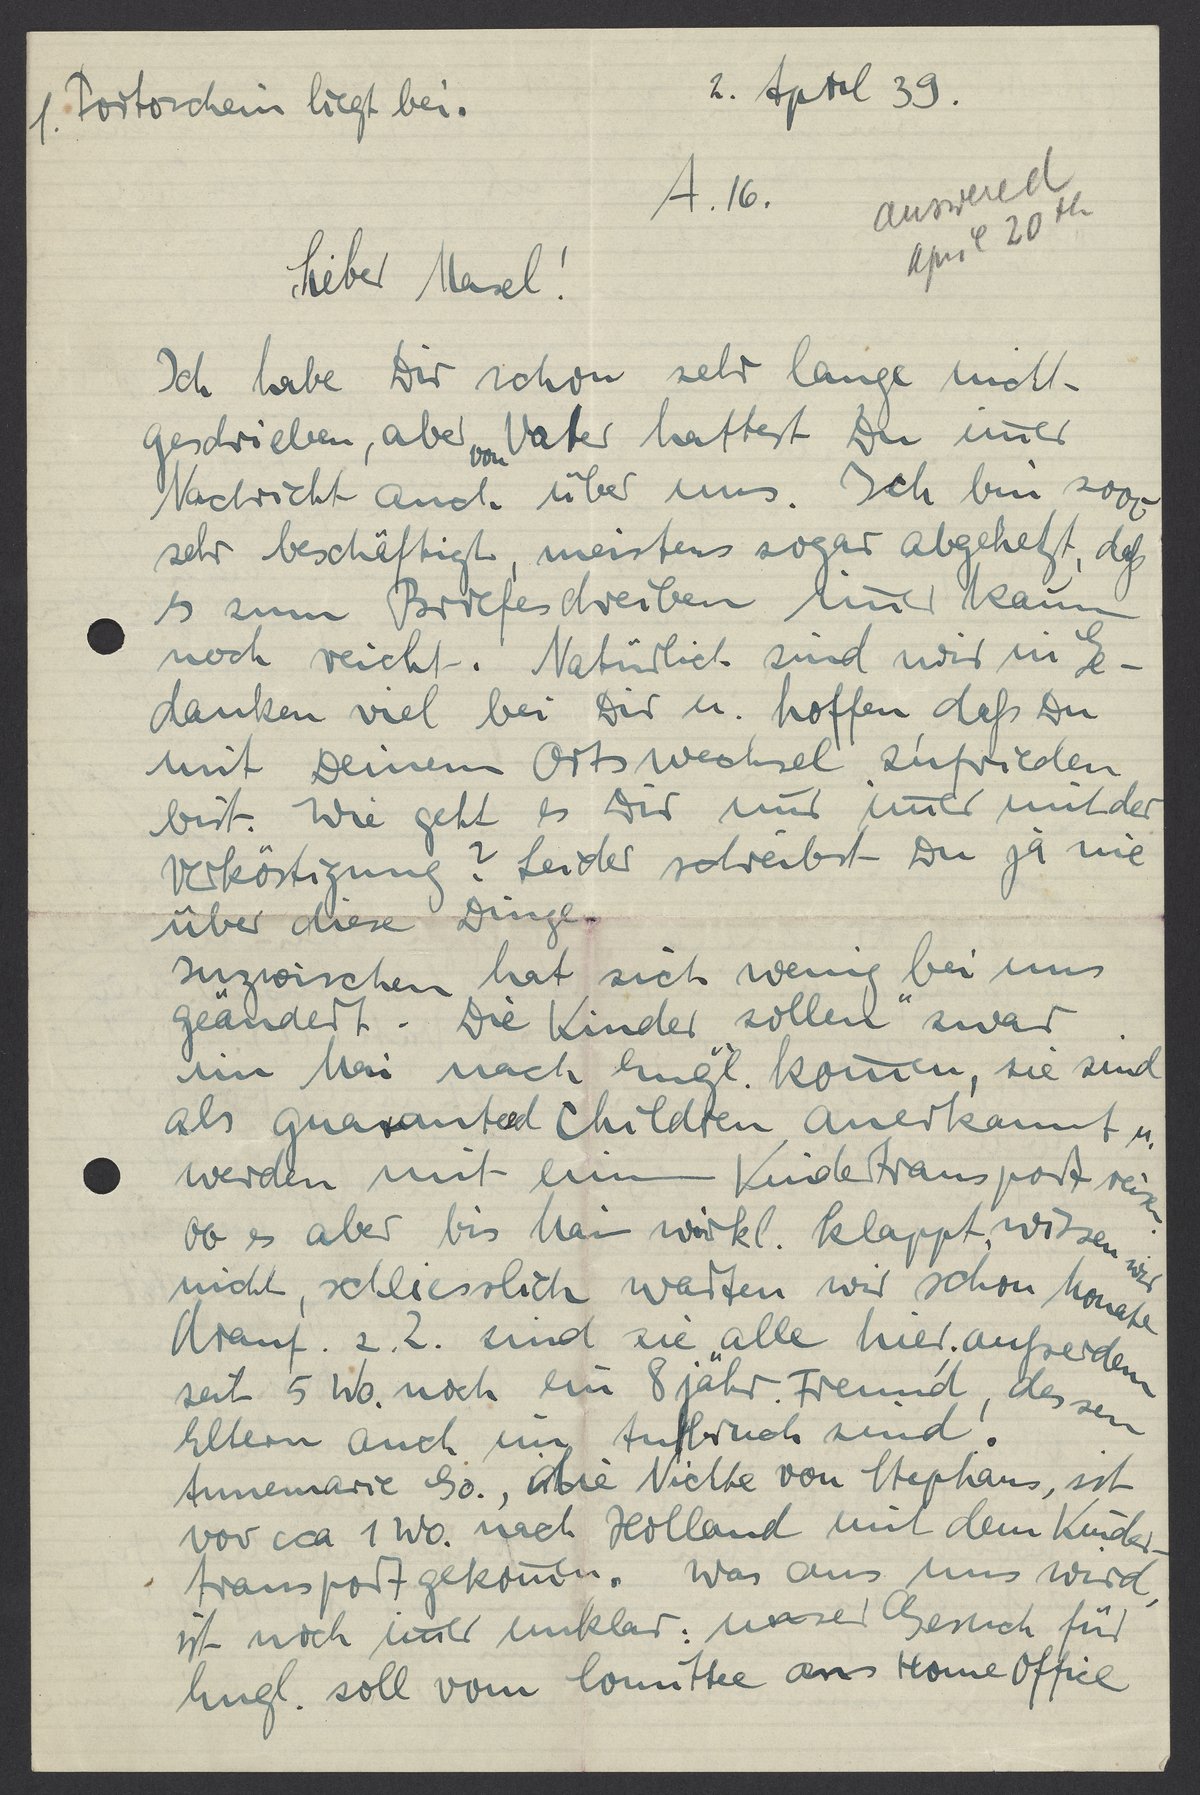 1. Portoschein liegt bei.
2. April 39.
A. 16.
answered
April 20th
Lieber Masel!
Ich habe Dir schon sehr lange nicht
geschrieben, aber von Vater hattest Du im̅er
Nachricht auch über uns. Ich bin sooo
sehr beschäftigt, meistens sogar abgehetzt, daß
es zum Briefeschreiben im̅er kaum
noch reicht. Natürlich sind wir in Ge-
danken viel bei Dir u. hoffen, daß Du
mit Deinem Ortswechsel zufrieden
bist. Wie geht es Dir nur im̅er mit der
Verköstigung? Leider schreibst Du ja nie
über diese Dinge.
Inzwischen hat sich wenig bei uns
geändert. Die Kinder "sollen" zwar
im Mai nach Engl. kom̅en, sie sind
als guaranteed children anerkannt u.
werden mit einem Kindertransport reisen.
ob es aber bis Mai wirkl. klappt, wissen wir
nicht, schliesslich warten wir schon Monate
drauf. z. Z. sind sie alle hier, außerdem
seit 5 Wo. noch ein 8 jähr. Freund, dessen
Eltern auch im Aufbruch sind!
Annemarie Go., die Nichte von Stephans, ist
vor cca 1 Wo. nach Holland mit dem Kinder-
transport gekom̅en. Was aus uns wird,
ist noch im̅er unklar: unser Gesuch für
Engl. soll vom Comittee ans Home Office